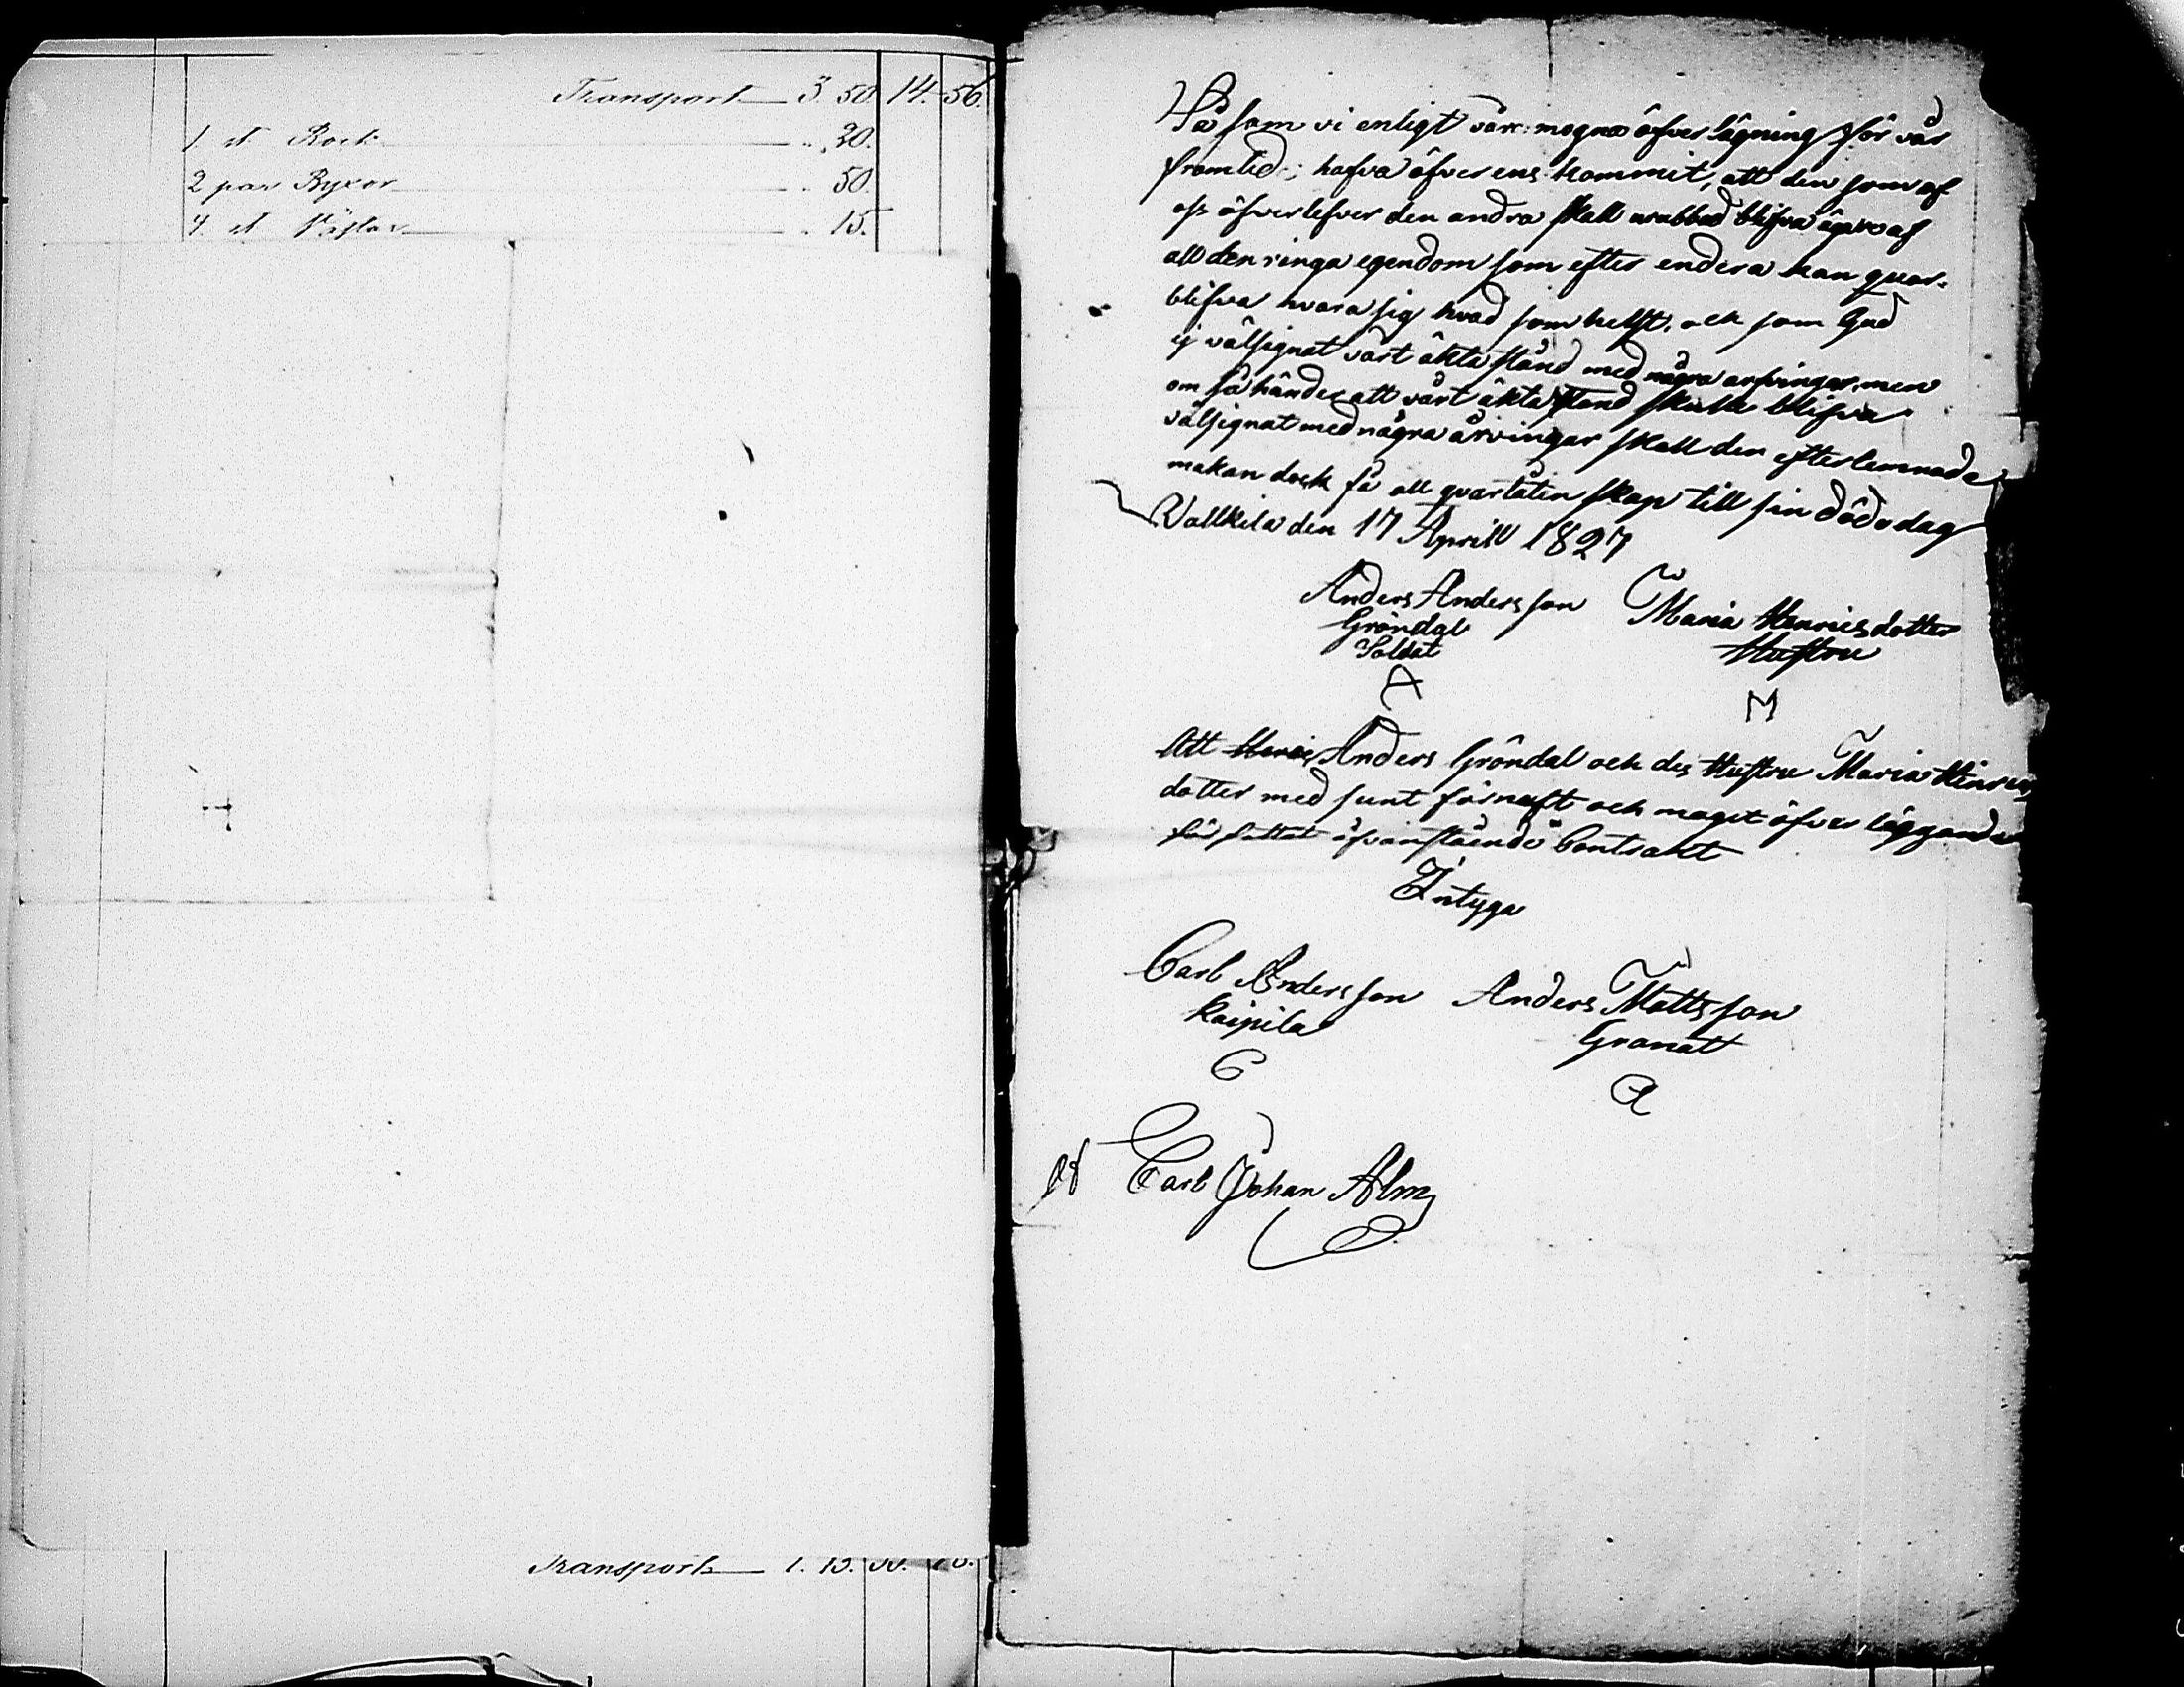 Transport 3. 50. 14. 56.
1. st Rock " 20.
2 par Byxor " 50.
4. st Västar " 15.
Transport 1. 15.
Så som vi enligt vårr mogna öfver lägning för vår
framtid; hafva öfver ens kommit, att den som af
oss öfverlefver den andra skall orubbad blifva ägare af
all den ringa egendom som efter endera kan quar-
blifva hvara sig hvad som helst, och som Gud
ej välsignat vårt äkta stånd med några arfvingar, men
om så händer att vårt äkta stånd skulle blifva
välsignat med några arvingar skall den efterlemnade
makan dock få all quarlåten skap till sin dödsdag
Vallkila den 17 Aprill 1827
Anders Andersson Maria Henricsdotter
Gröndal Hustru
Soldat
A M
Att Anders Gröndal och des Hustru Maria Henrics
dotter med sunt förnuft och moget öfver läggande
för fattat ofvanstående Contract
Intyga
Carl Andersson Anders Mattsson
Kaipila Granat
C A
Carl Johan Alm